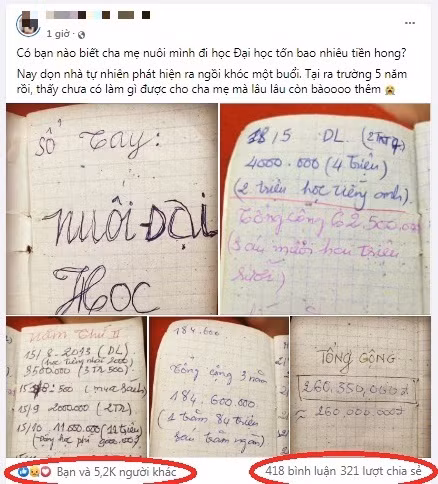 1 giờ ·
Có bạn nào biết cha mẹ nuôi mình đi học Đại học tốn bao nhiêu tiền hong?
Nay dọn nhà tự nhiên phát hiện ra ngồi khóc một buổi. Tại ra trường 5 năm
rồi, thấy chưa có làm gì được cho cha mẹ mà lâu lâu còn bàoooo thêm 😭
Sổ tay:
nuôi Đại
Học
18/5 DL.
4000.000 (4 triệu)
(2 triệu học tiếng anh).
Tổng cộng 62.500.000
(Sáu mươi hai triệu
Năm thứ II
15/8-2013 (DL)
8500000
15/9 2000000
15/10. 11.000.000 (11 triệu
184.600
Tổng cộng 3 năm
184.600.000
(1 trăm 84 triệu
sáu trăm ngàn)
TỔNG CỘNG
260.350.000đ
≈ 260.000.000đ
Bạn và 5,2K người khác
418 bình luận 321 lượt chia sẻ